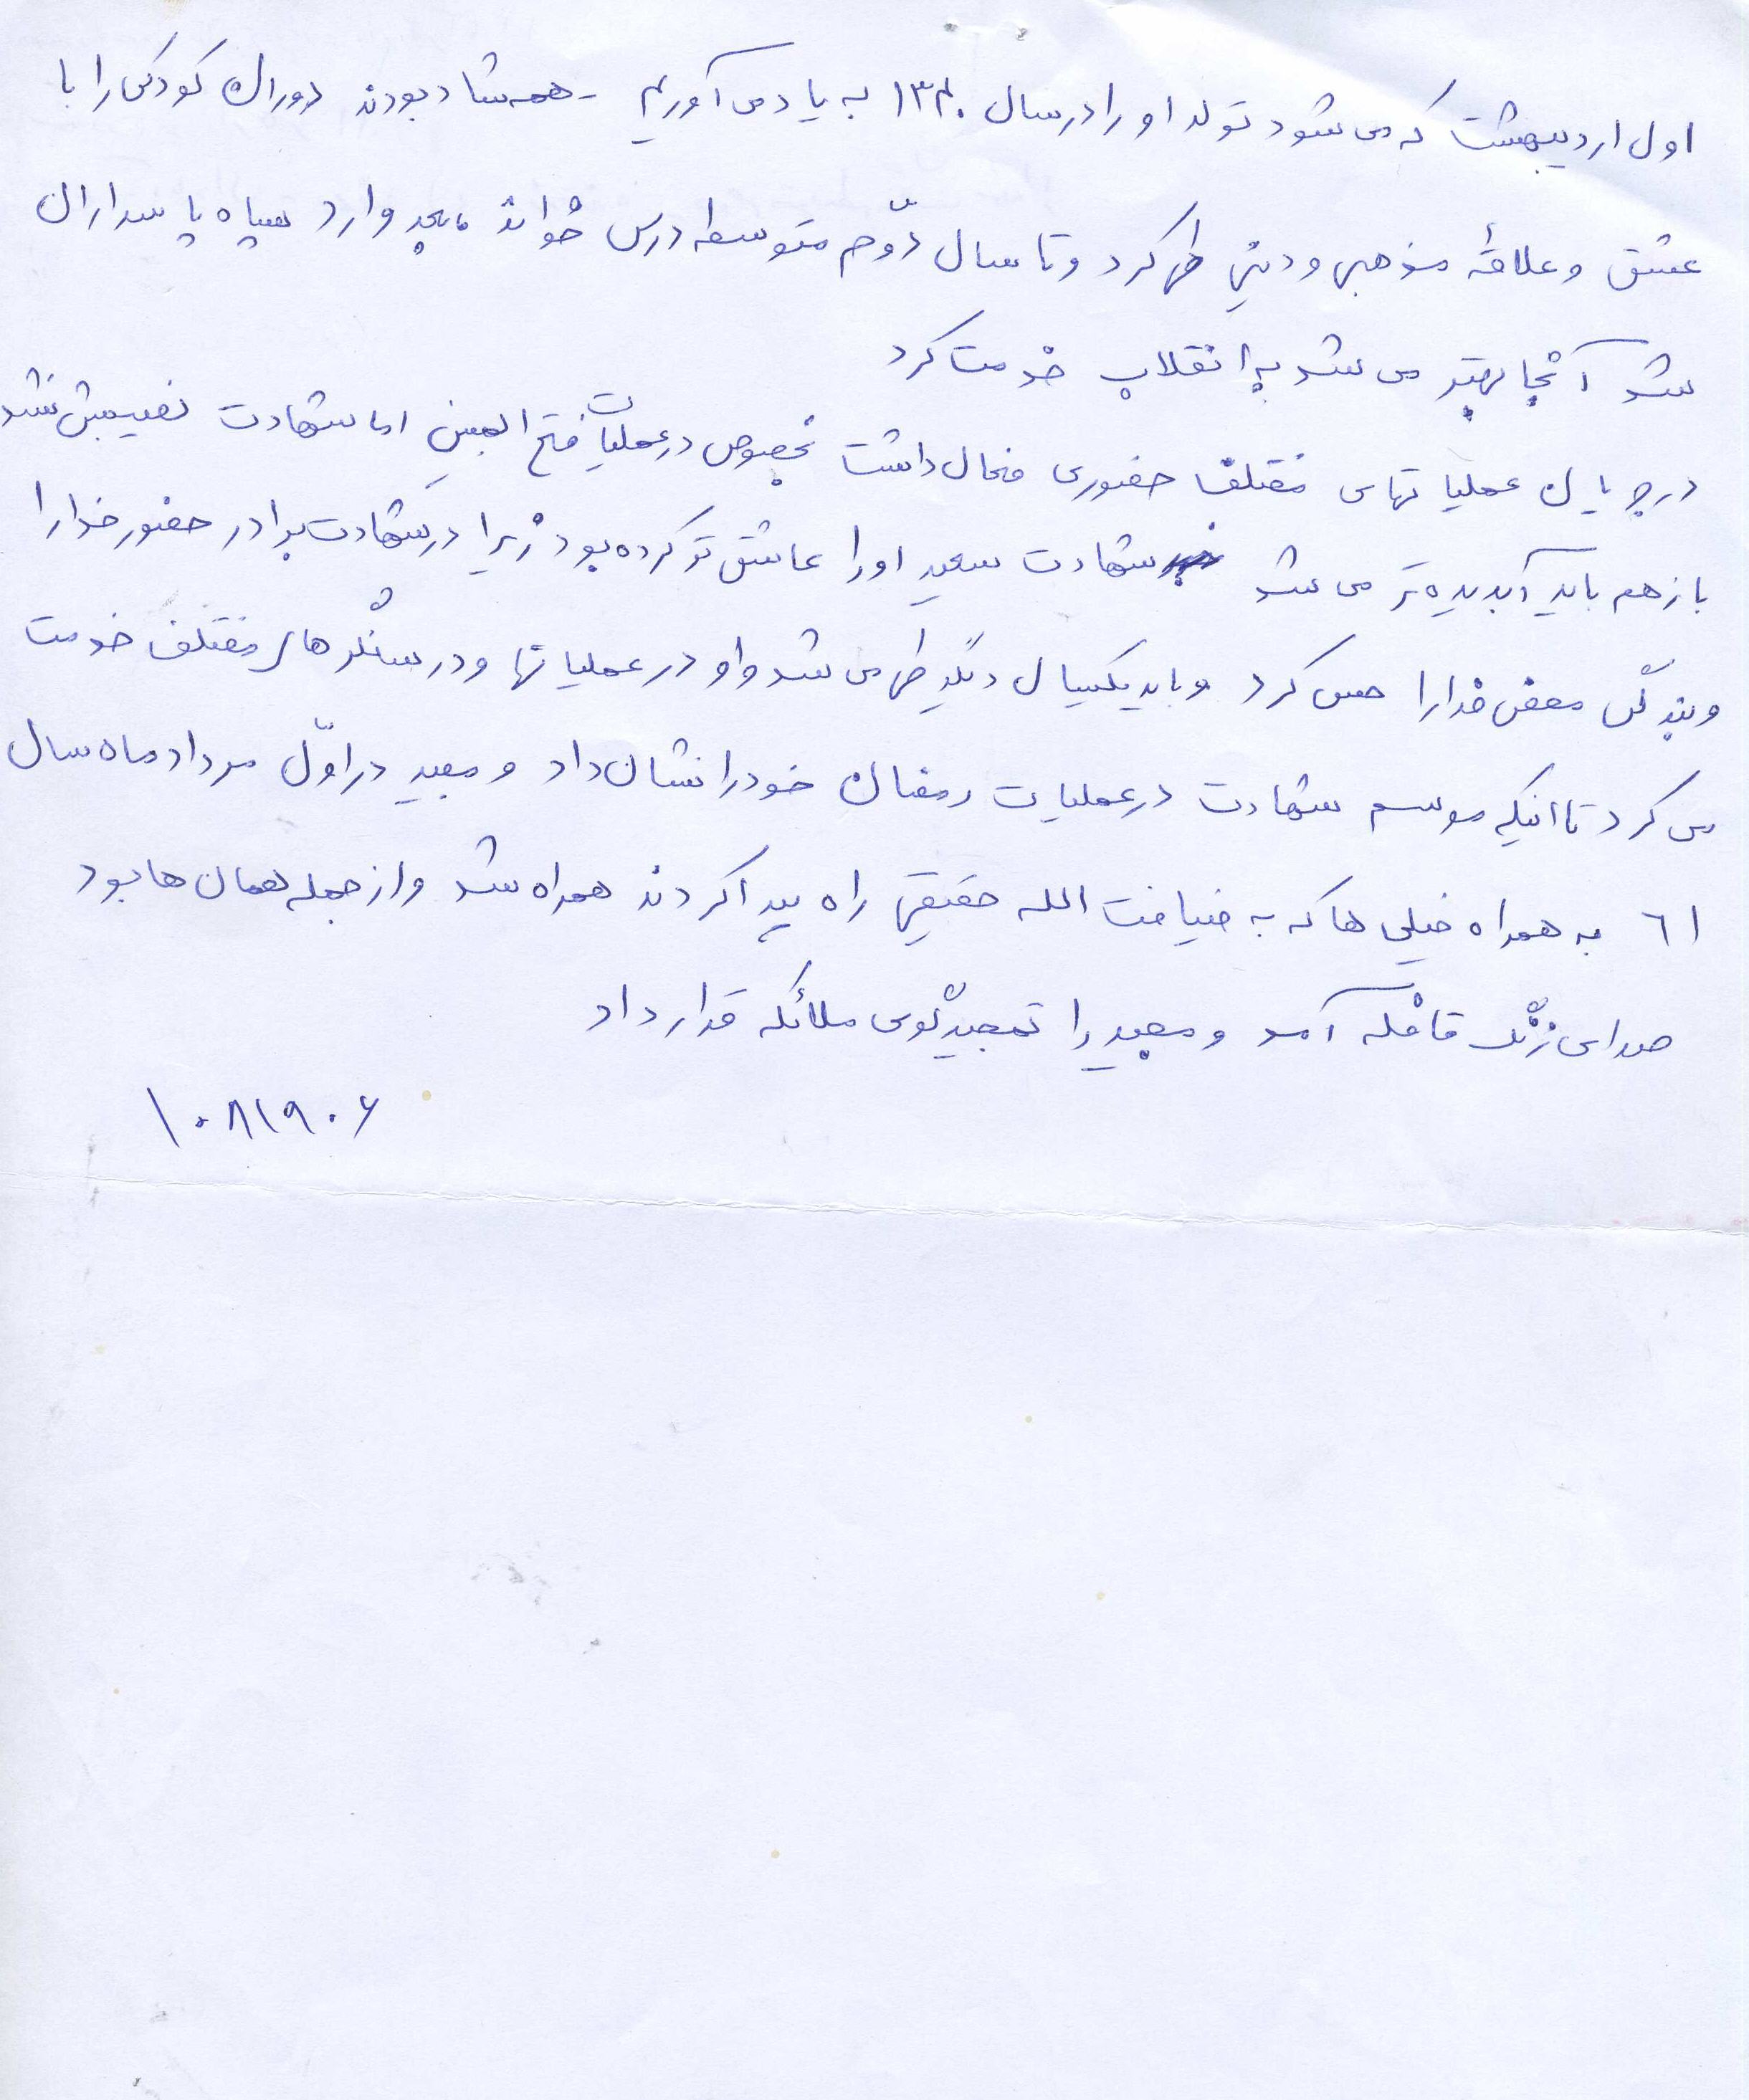 اول اردیبهشت که می شود تولد او را در سال ۱۳۴۰ به یاد می آوریم - همه شاد بودند دوران کودکی را با
عشق و علاقهٔ مذهبی و دینی طی کرد و تا سال دوّم متوسطه درس خواند وارد سپاه پاسداران
شد آنجا بهتر می شد به انقلاب خدمت کرد
در جریان عملیاتهای مختلف حضوری فعال داشت بخصوص در عملیات فتح المبین اما شهادت نصیبش نشد
باز هم باید آبدیده تر می شد شهادت سعید او را عاشق تر کرده بود زیرا در شهادت برادر حضور خدا را
و بندگی محض خدا را حس کرد و باید یکسال دیگر طی می شد و او در عملیاتها و در سنگرهای مختلف خدمت
می کرد تا اینکه موسم شهادت در عملیات رمضان خود را نشان داد و مجید در اوّل مرداد ماه سال
۶۱ به همراه خیلی ها که به ضیافت الله حقیقی راه پیدا کردند همراه شد و از جمله همان ها بود
صدای زنگ قافله آمد و مجید را تمجیدگوی ملائکه قرار داد
۱۰۸۱۹۰۶